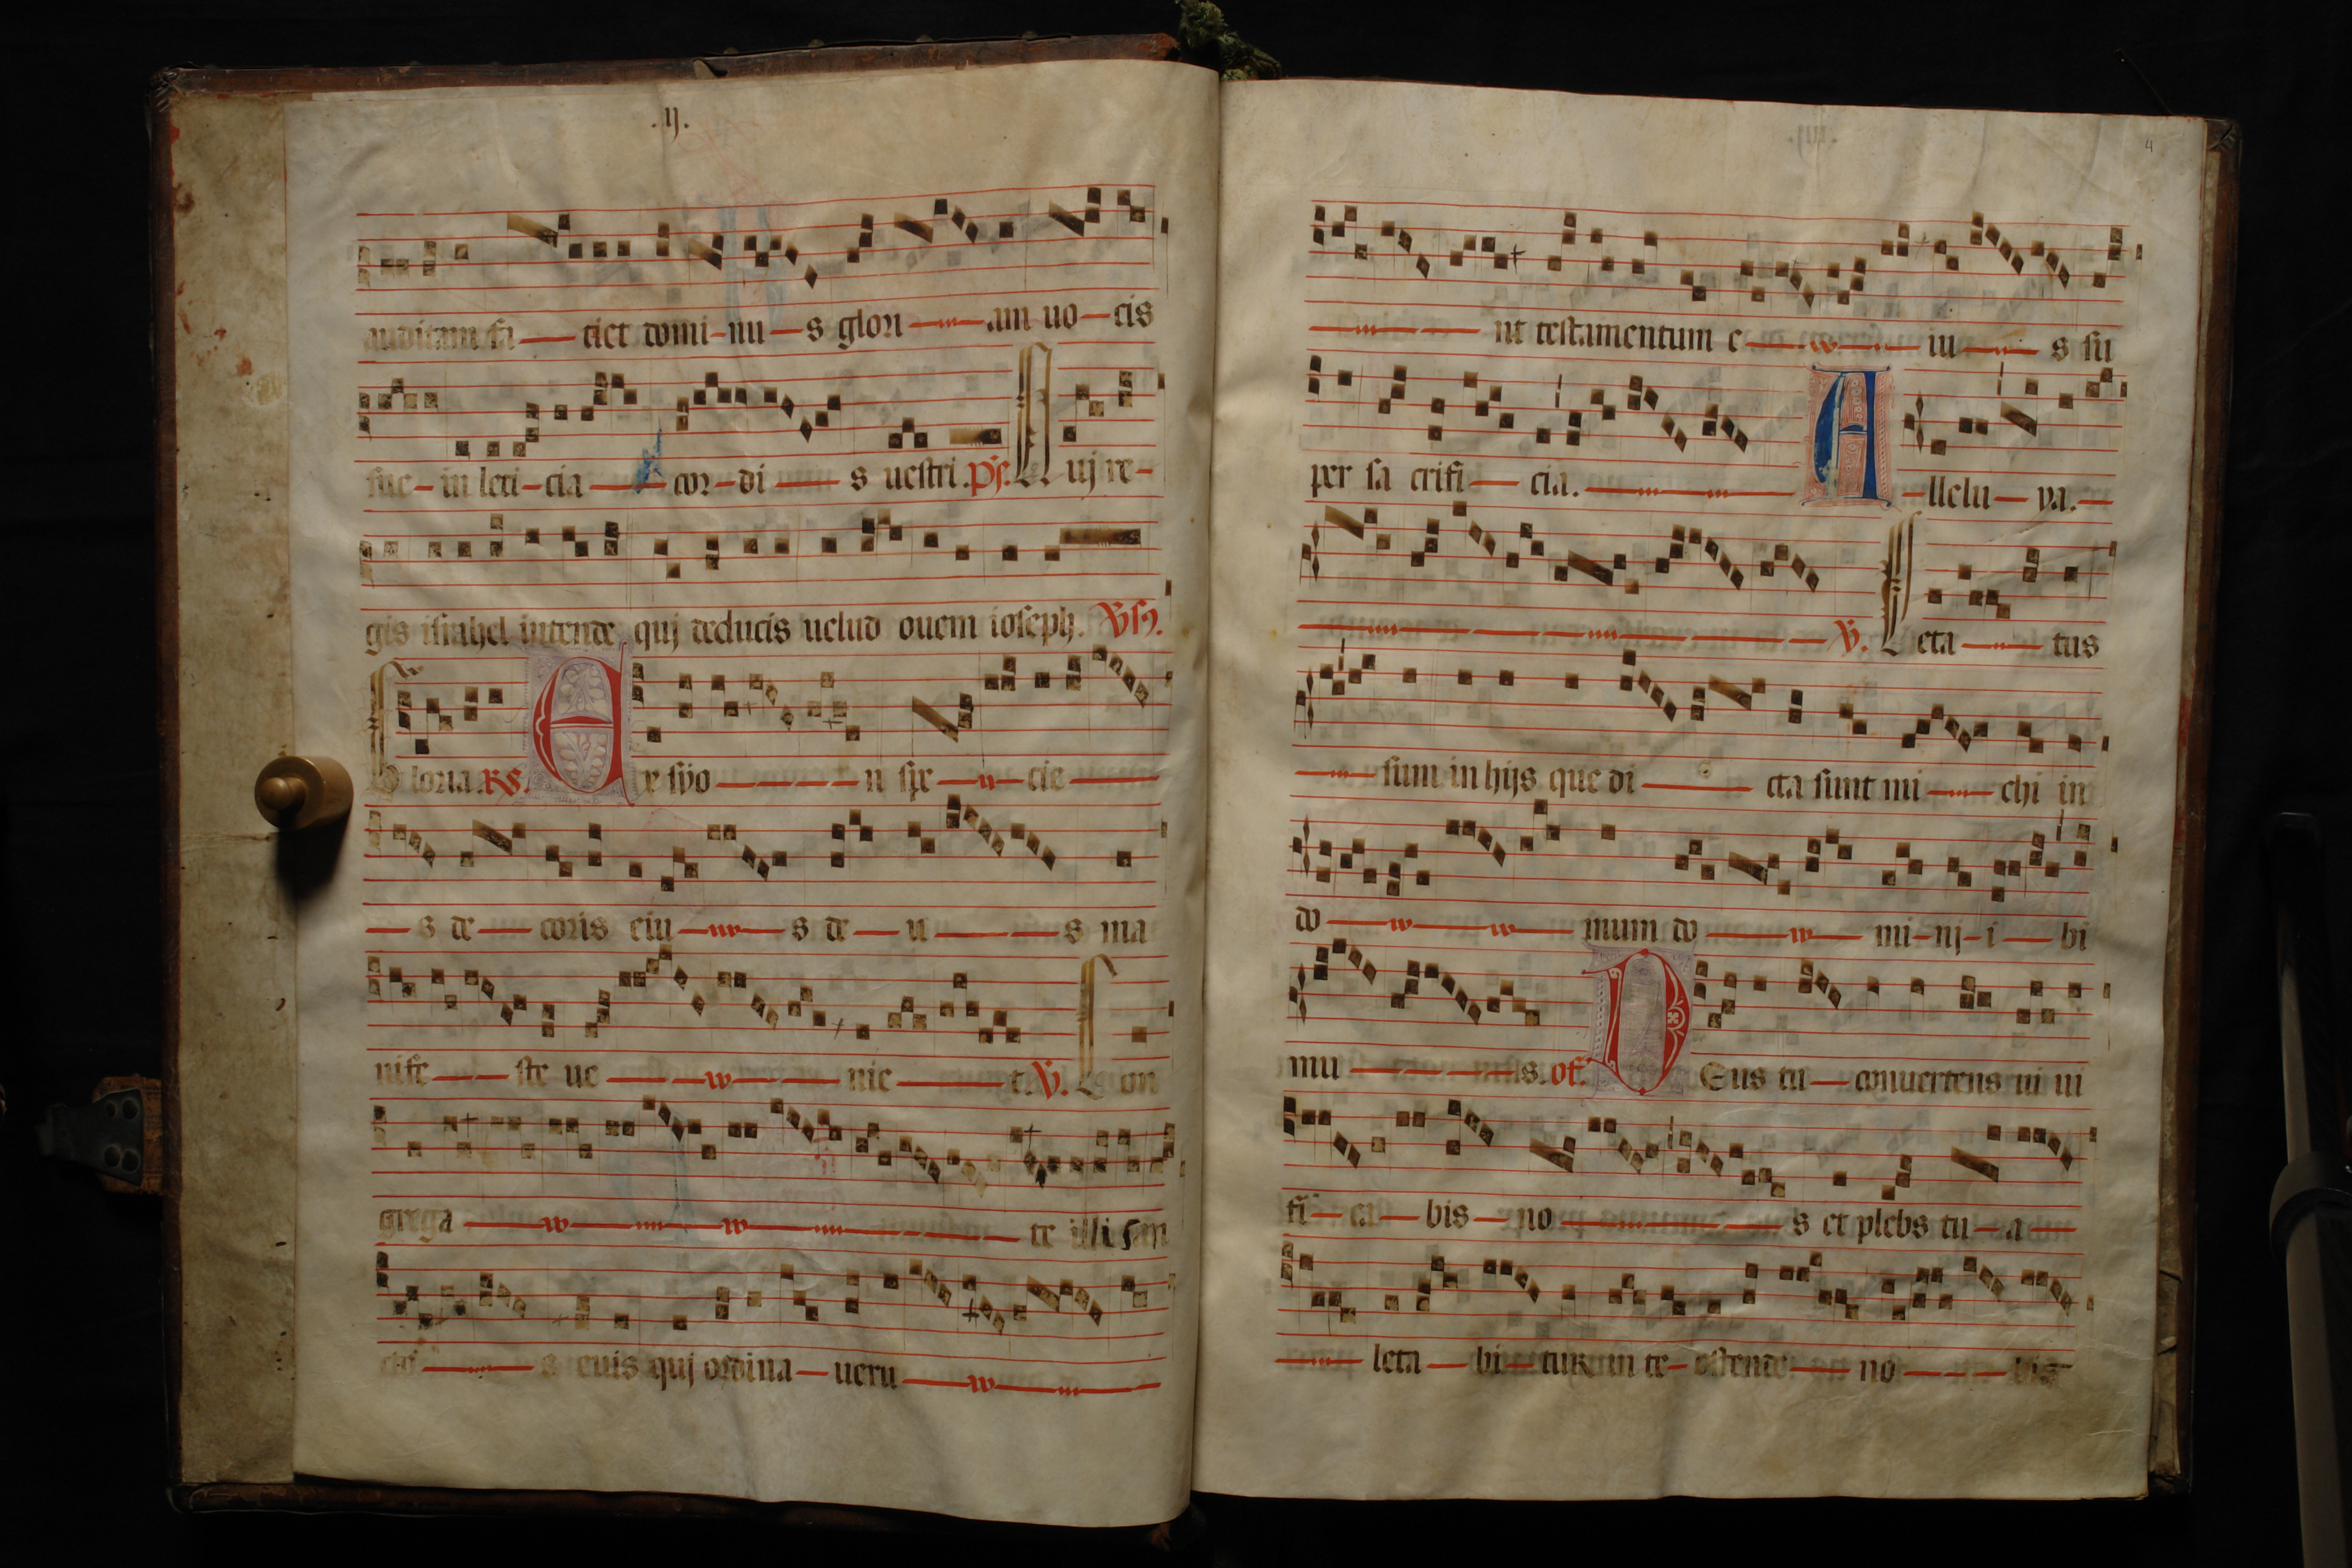 .ij.
auditam fa — ciet domi-nu — s glori — am uo — cis
sue — in leti-cia — cor-di — s uestri. ps. Quj re-
gis israhel intende quj deducis uelud ouem ioseph. Vs.
Gloria. Rs. Ex syo — n spe — cie —
— s de — coris eiu — s de — u — s ma
nife — ste ue — nie — t. V. Con
grega — te illi san
cto — s eius quj ordina — ueru —
4
— nt testamentum e — iu — s su
per sa crifi — cia. — A — llelu — ya. —
— V. Leta — tus
— sum in hijs que di — cta sunt mi — chi in
do — mum do — mi-nj-i — bi
mu — s. of. DEus tu — conuertens ui ui
fi — ca — bis — no — s et plebs tu — a —
— leta — bi — tur in te — ostende — no — bis